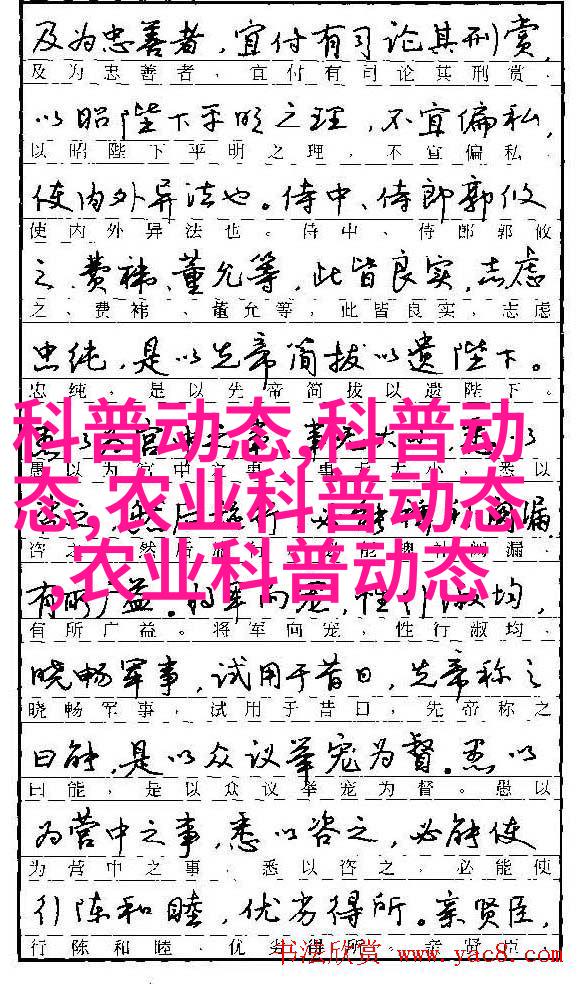 及为忠善者，宜付有司论其刑赏，
及为忠善者，宜付有司论其刑赏，
以昭陛下平明之理，不宜偏私，
以昭陛下平明之理，不宜偏私，
使内外异法也。侍中、侍郎郭攸
使内外异法也。侍中、侍郎郭攸
之、费祎、董允等，此皆良实，志虑
之、费祎、董允等，此皆良实，志虑
忠纯，是以先帝简拔以遗陛下。
忠纯，是以先帝简拔以遗陛下。
科普动态,科普动
态,农业科普动态
,农业科普动态
愚以为宫中之事，事无大小，悉以
愚以为宫中之事，事无大小，悉以
漏
咨之，然后施行，必能裨补阙漏，
有所广益。将军向宠，性行淑均，
有所广益。将军向宠，性行淑均，
晓畅军事，试用于昔日，先帝称之
晓畅军事，试用于昔日，先帝称之
曰能，是以众议举宠为督。愚以
曰能，是以众议举宠为督。愚以
为营中之事，悉以咨之，必能使
为营中之事，悉以咨之，必能使
行陈和睦，优劣得所。亲贤臣，
行陈和睦，优劣得所。亲贤臣，
书法欣赏 www.yac8.com